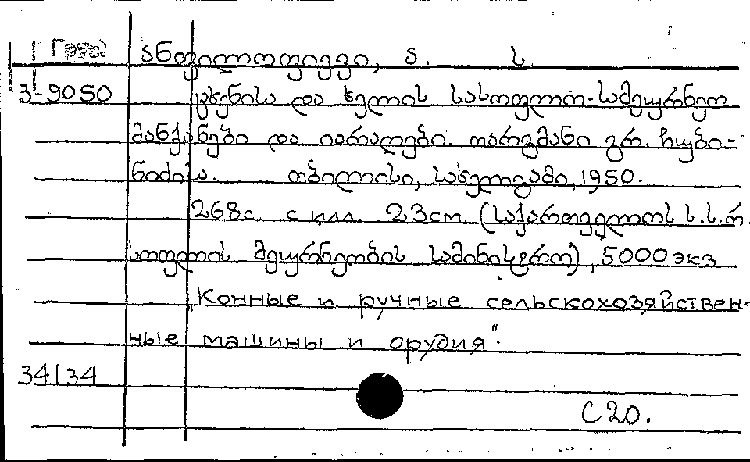 Груз
ანფილოფიევი, ა. ს.
3-9050
ცხენისა და ხელის სასოფლო-სამეურნეო
მანქანები და იარაღები. თარგმანი გრ. ჩუბი-
ნიძისა. თბილისი, სახელგამი, 1950.
268с. с илл. 23см. (საქართველოს ს.ს.რ.
სოფლის მეურნეობის სამინისტრო), 5000 экз
„Конные и ручные сельскохозяйствен-
ные машины и орудия".
34134
С20.